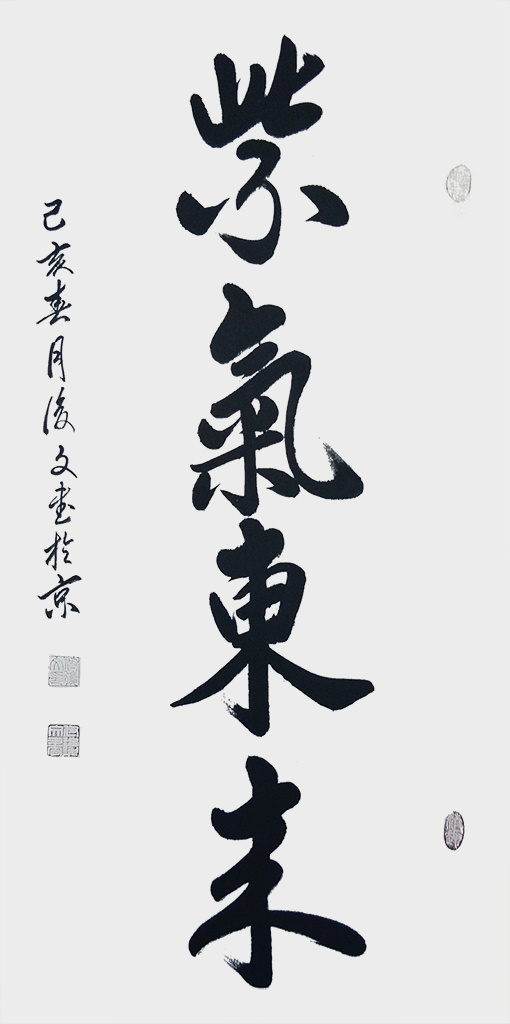 紫氣東来
己亥春月俊文書於京